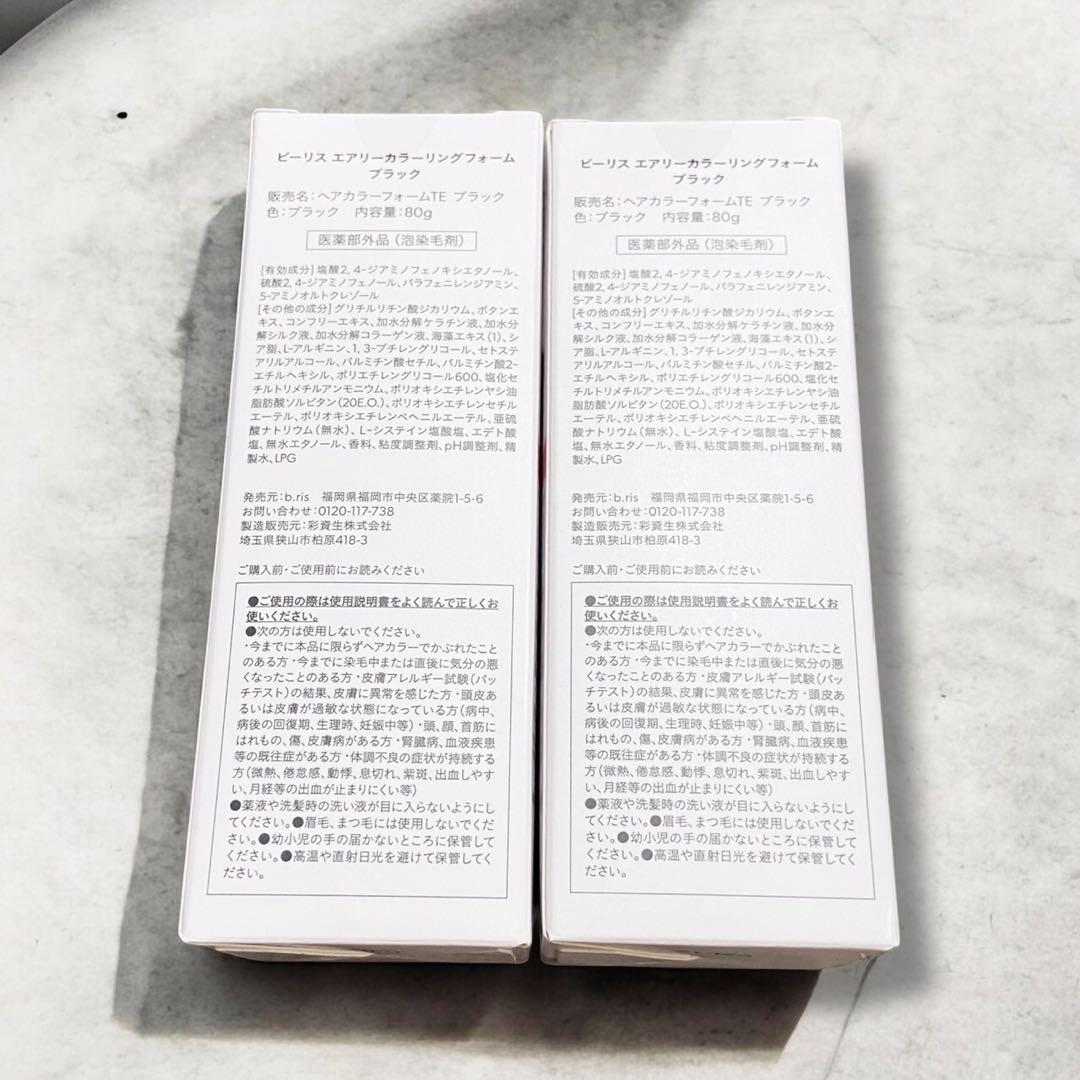 ビーリス エアリーカラーリングフォーム
ブラック
販売名：ヘアカラーフォームTE ブラック
色：ブラック 内容量：80g
医薬部外品（泡染毛剤）
[有効成分] 塩酸2, 4-ジアミノフェノキシエタノール、
硫酸2, 4-ジアミノフェノール、パラフェニレンジアミン、
5-アミノオルトクレゾール
[その他の成分] グリチルリチン酸ジカリウム、ボタンエ
キス、コンフリーエキス、加水分解ケラチン液、加水分
解シルク液、加水分解コラーゲン液、海藻エキス（1）、シ
ア脂、L-アルギニン、1, 3-ブチレングリコール、セトステ
アリルアルコール、パルミチン酸セチル、パルミチン酸2-
エチルヘキシル、ポリエチレングリコール600、塩化セ
チルトリメチルアンモニウム、ポリオキシエチレンヤシ油
脂肪酸ソルビタン（20E.O.）、ポリオキシエチレンセチル
エーテル、ポリオキシエチレンベヘニルエーテル、亜硫
酸ナトリウム（無水）、L-システイン塩酸塩、エデト酸
塩、無水エタノール、香料、粘度調整剤、pH調整剤、精
製水、LPG
発売元：b.ris 福岡県福岡市中央区薬院1-5-6
お問い合わせ：0120-117-738
製造販売元：彩資生株式会社
埼玉県狭山市柏原418-3
ご購入前・ご使用前にお読みください
●ご使用の際は使用説明書をよく読んで正しくお
使いください。
●次の方は使用しないでください。
・今までに本品に限らずヘアカラーでかぶれたこと
のある方・今までに染毛中または直後に気分の悪
くなったことのある方・皮膚アレルギー試験（パッ
チテスト）の結果、皮膚に異常を感じた方・頭皮あ
るいは皮膚が過敏な状態になっている方（病中、
病後の回復期、生理時、妊娠中等）・頭、顔、首筋に
はれもの、傷、皮膚病がある方・腎臓病、血液疾患
等の既往症がある方・体調不良の症状が持続する
方（微熱、倦怠感、動悸、息切れ、紫斑、出血しやす
い、月経等の出血が止まりにくい等）
●薬液や洗髪時の洗い液が目に入らないようにし
てください。●眉毛、まつ毛には使用しないでくだ
さい。●幼小児の手の届かないところに保管して
ください。●高温や直射日光を避けて保管してく
ださい。
ビーリス エアリーカラーリングフォーム
ブラック
販売名：ヘアカラーフォームTE ブラック
色：ブラック 内容量：80g
医薬部外品（泡染毛剤）
[有効成分] 塩酸2, 4-ジアミノフェノキシエタノール、
硫酸2, 4-ジアミノフェノール、パラフェニレンジアミン、
5-アミノオルトクレゾール
[その他の成分] グリチルリチン酸ジカリウム、ボタンエ
キス、コンフリーエキス、加水分解ケラチン液、加水分
解シルク液、加水分解コラーゲン液、海藻エキス（1）、シ
ア脂、L-アルギニン、1, 3-ブチレングリコール、セトステ
アリルアルコール、パルミチン酸セチル、パルミチン酸2-
エチルヘキシル、ポリエチレングリコール600、塩化セ
チルトリメチルアンモニウム、ポリオキシエチレンヤシ油
脂肪酸ソルビタン（20E.O.）、ポリオキシエチレンセチル
エーテル、ポリオキシエチレンベヘニルエーテル、亜硫
酸ナトリウム（無水）、L-システイン塩酸塩、エデト酸
塩、無水エタノール、香料、粘度調整剤、pH調整剤、精
製水、LPG
発売元：b.ris 福岡県福岡市中央区薬院1-5-6
お問い合わせ：0120-117-738
製造販売元：彩資生株式会社
埼玉県狭山市柏原418-3
ご購入前・ご使用前にお読みください
●ご使用の際は使用説明書をよく読んで正しくお
使いください。
●次の方は使用しないでください。
・今までに本品に限らずヘアカラーでかぶれたこと
のある方・今までに染毛中または直後に気分の悪
くなったことのある方・皮膚アレルギー試験（パッ
チテスト）の結果、皮膚に異常を感じた方・頭皮あ
るいは皮膚が過敏な状態になっている方（病中、
病後の回復期、生理時、妊娠中等）・頭、顔、首筋に
はれもの、傷、皮膚病がある方・腎臓病、血液疾患
等の既往症がある方・体調不良の症状が持続する
方（微熱、倦怠感、動悸、息切れ、紫斑、出血しやす
い、月経等の出血が止まりにくい等）
●薬液や洗髪時の洗い液が目に入らないようにし
てください。●眉毛、まつ毛には使用しないでくだ
さい。●幼小児の手の届かないところに保管して
ください。●高温や直射日光を避けて保管してく
ださい。